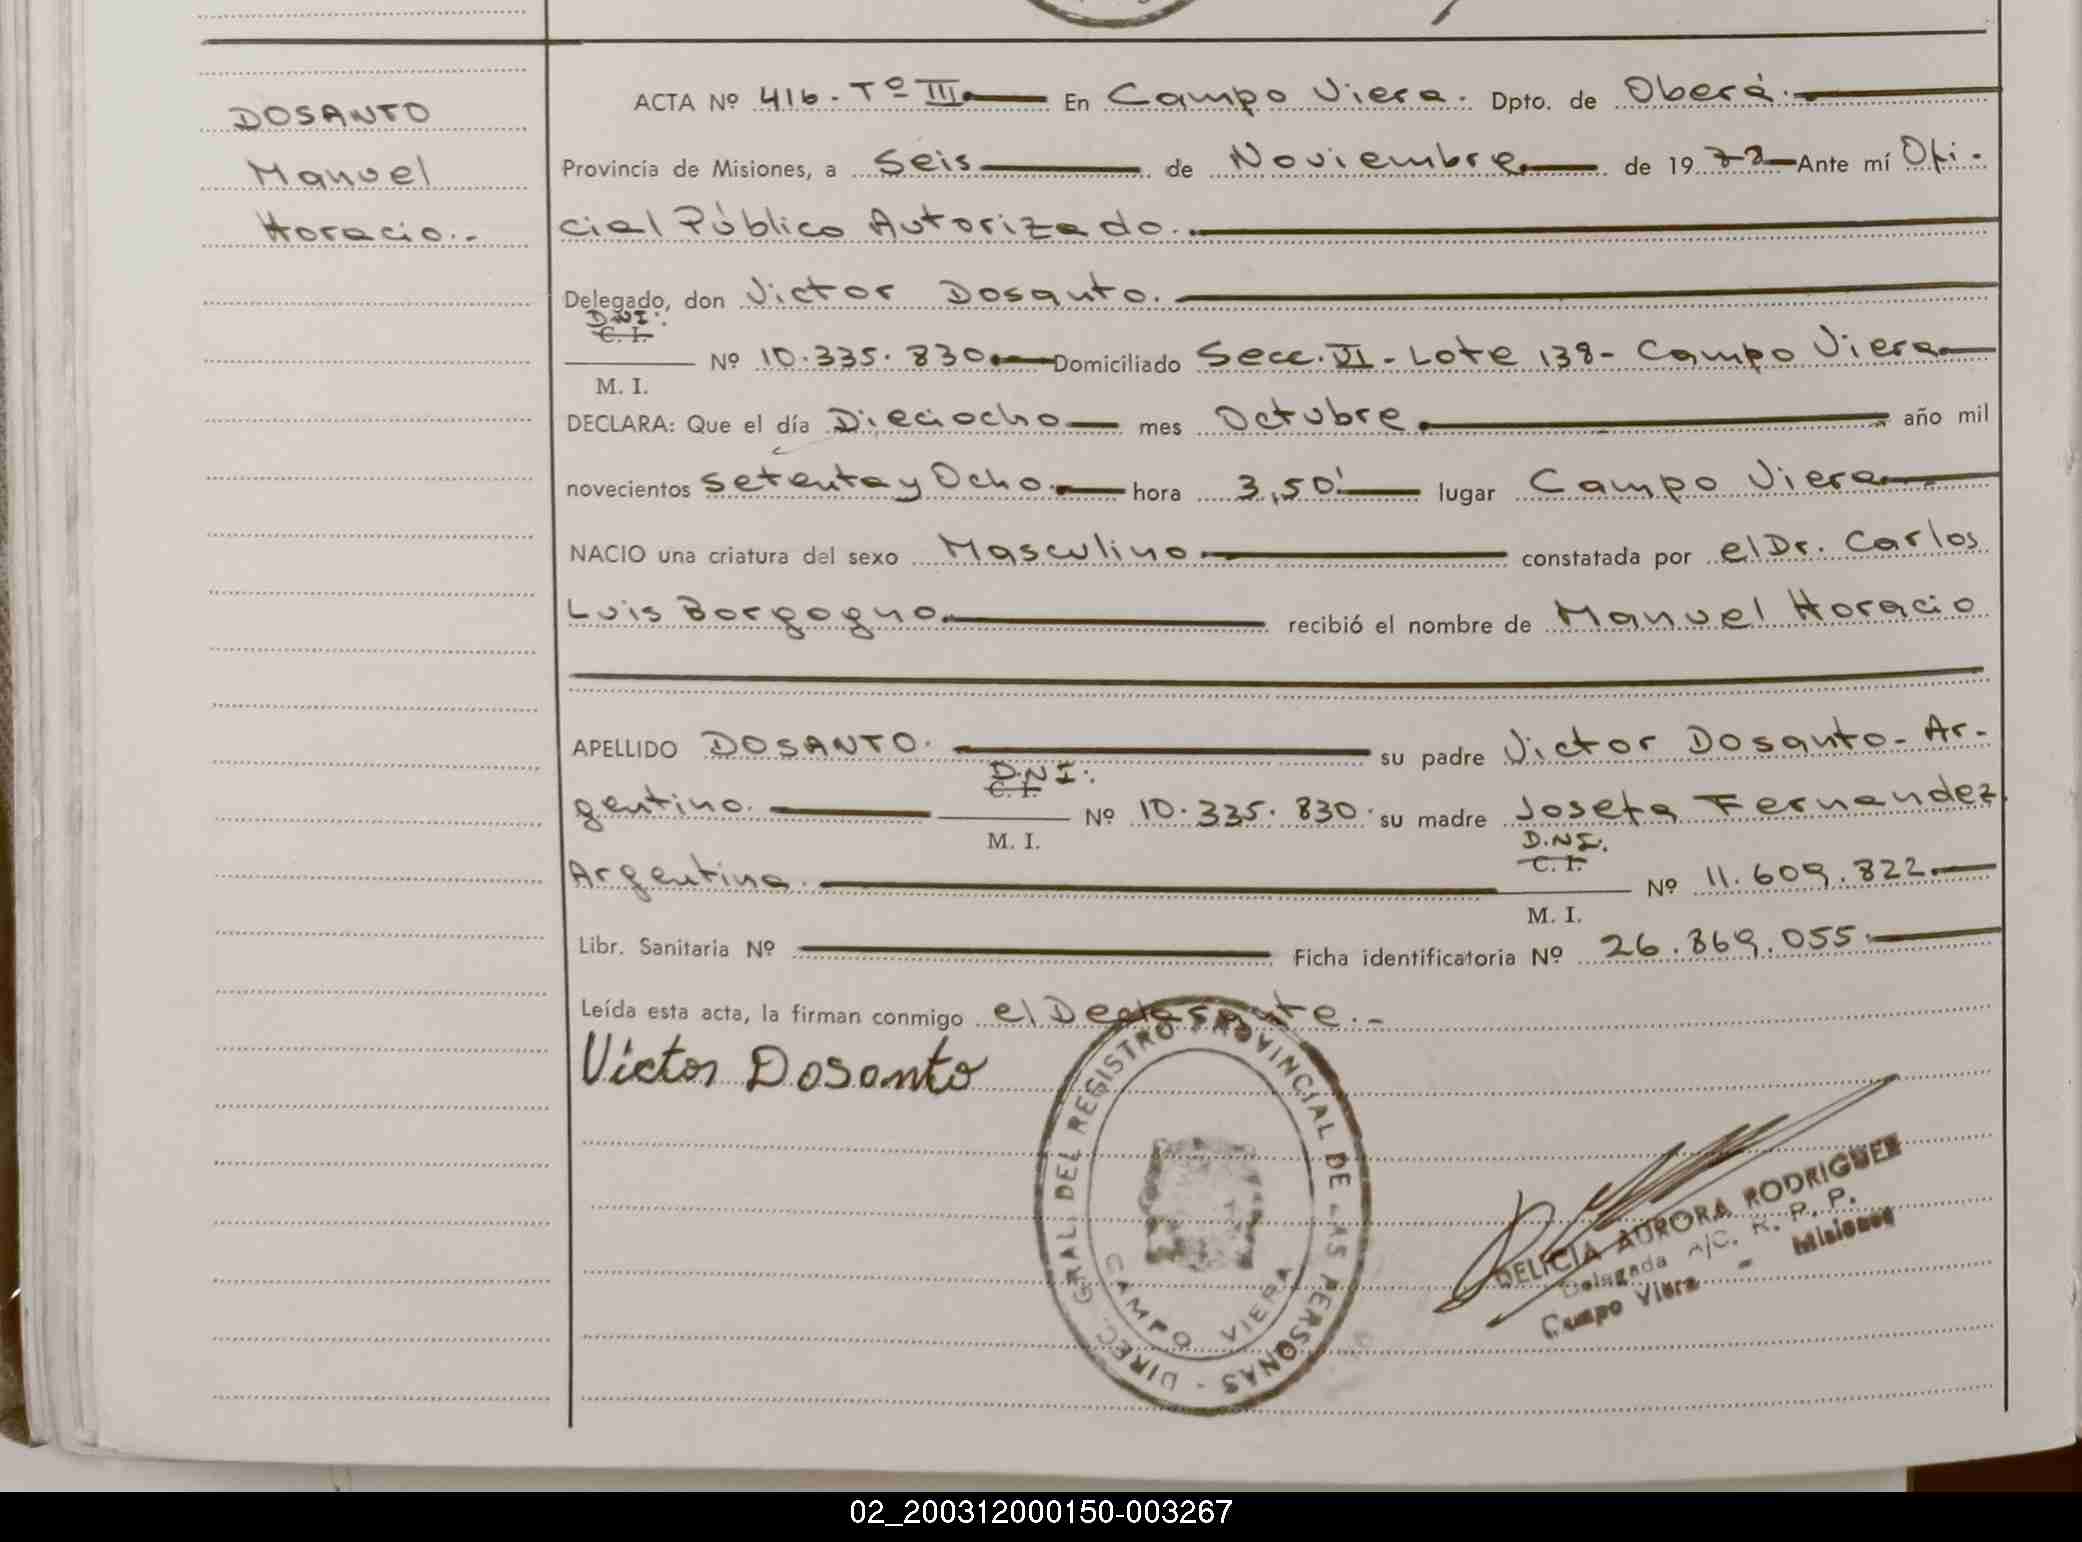 DOSANTO
Manuel
Horacio.-
ACTA Nº 416 - Tº III En Campo Viera. Dpto. de Oberá.
Provincia de Misiones, a Seis de Noviembre de 1978 Ante mí Ofi-
cial Público Autorizado.
Delegado, don Victor Dosanto.
D.N.I.
C. I.
Nº 10.335.830 Domiciliado Secc. VI - Lote 138 - Campo Viera
M. I.
DECLARA: Que el día Dieciocho mes Octubre año mil
novecientos setenta y Ocho hora 3,50' lugar Campo Viera
NACIO una criatura del sexo Masculino constatada por el Dr. Carlos
Luis Borgogno recibió el nombre de Manuel Horacio
APELLIDO DOSANTO. su padre Victor Dosanto - Ar-
D.N.I.
C. I.
gentino. Nº 10.335.830. su madre Josefa Fernandez
M. I.
D.N.I.
C. I.
Argentina. Nº 11.609.822.
M. I.
Libr. Sanitaria Nº Ficha identificatoria Nº 26.869.055.
Leída esta acta, la firman conmigo el Declarante.-
Victor Dosanto
DIREC. GRAL. DEL REGISTRO PROVINCIAL DE LAS PERSONAS -
CAMPO VIERA
DELICIA AURORA RODRIGUEZ
Delegada A/C. R. P. P.
Campo Viera - Misiones
02_200312000150-003267